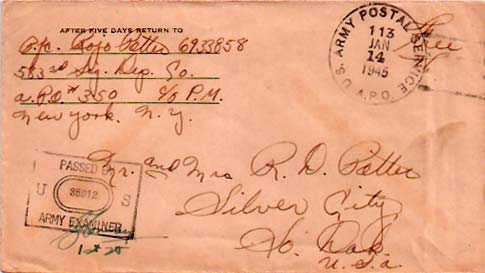 AFTER FIVE DAYS RETURN TO
Pvc. Rojo Patter 6933858
583rd Sig. Dep. Co.
a.P.O.# 350 c/o P.M.
New York. N.Y.
U.S. ARMY POSTAL SERVICE
113
JAN
14
1945
A.P.O.
Free
Mr. and Mrs R. D. Patter
Silver City
So. Dak
U.S.a.
PASSED BY
U 35012 S
ARMY EXAMINER